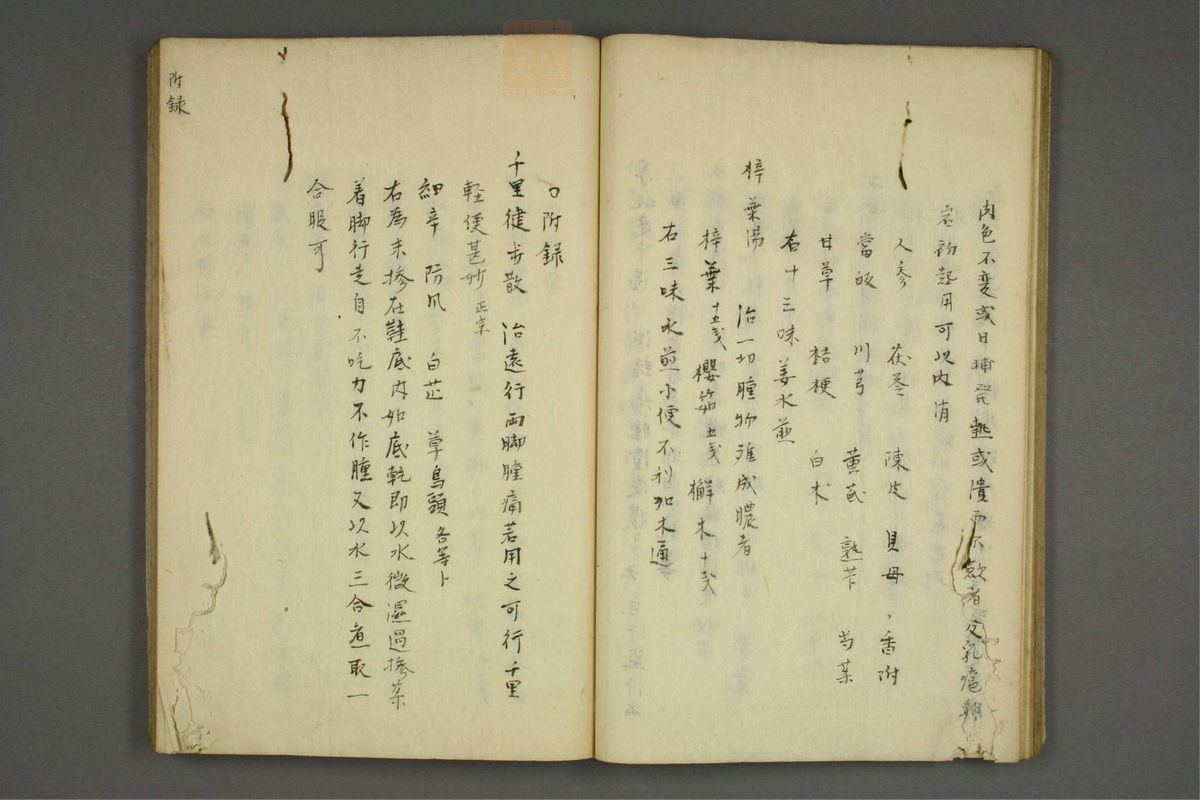 肉色不変或日晡発熱或潰而不歛者及乳癌
岩初起用可以内消
人参 茯苓 陳皮 貝母 香附
當皈 川芎 黄芪 熟芐 芍薬
甘草 桔梗 白朮
右十三味姜水煎
梓葉湯 治一切腫物難成膿者
梓葉十五戔 櫻茹五戔 樕木十戔
右三味水煎小便不利加木通
附録
千里健步散 治遠行両脚腫痛若用之可行千里
軽便甚妙 正宗
細辛 防风 白芷 草烏頭 各等卜
右為末掺在鞋底内如底乾即以水微濕過掺薬
着脚行走自不吃力不作腫又以水三合煮取一
合服可
附録